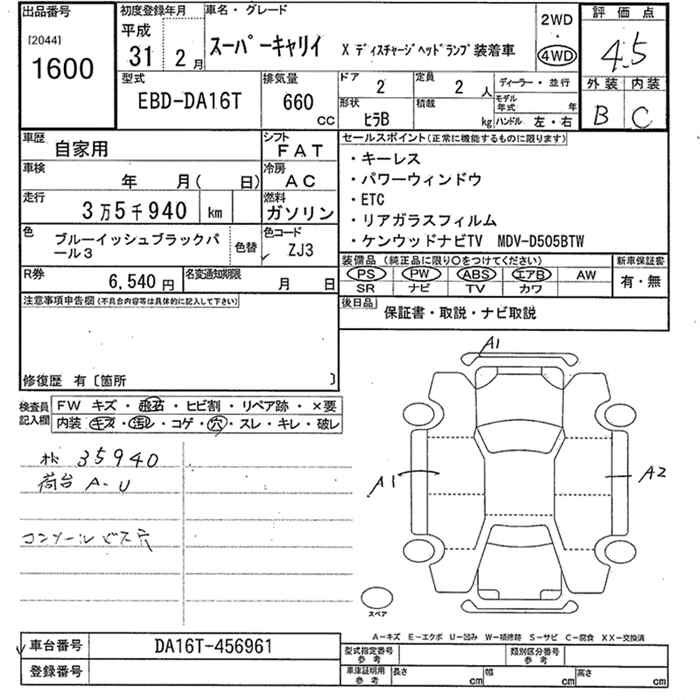 出品番号
[2044]
1600
初度登録年月
平成
31 2 月
車名・グレード
スーパーキャリイ X ディスチャージヘッドランプ装着車
2WD
4WD
評価点
4.5
外装 内装
B C
型式
EBD-DA16T
排気量
660
CC
ドア
2
定員
2 人
形状
ヒラB
積載
kg
ディーラー・並行
モデル年式 年
ハンドル 左・右
車歴
自家用
シフト
FAT
車検
年 月( 日)
冷房
AC
走行
3万5千940 km
燃料
ガソリン
色
ブルーイッシュブラックパール3
色替
色コード
ZJ3
R券
6,540 円
名変通知期限
月 日
セールスポイント(正常に機能するものに限ります)
・キーレス
・パワーウィンドウ
・ETC
・リアガラスフィルム
・ケンウッドナビTV MDV-D505BTW
装備品(純正品に限り○をつけてください)
PS PW ABS エアB AW
SR ナビ TV カワ
新車保証書
有・無
後日品
保証書・取説・ナビ取説
注意事項申告欄(不具合内容等は具体的に記入して下さい)
修復歴 有〔箇所 〕
検査員記入欄
FW キズ・飛石・ヒビ割・リペア跡・×要
内装 キズ・汚レ・コゲ・穴・スレ・キレ・破レ
35940
荷台 A-U
コンソールビス穴
A1
A1
A2
スペア
A-キズ E-エクボ U-凹み W-補修跡 S-サビ C-腐食 XX-交換済
車台番号
DA16T-456961
登録番号
型式指定番号参考
類別区分番号参考
車庫証明用参考
長さ cm
幅 cm
高さ cm